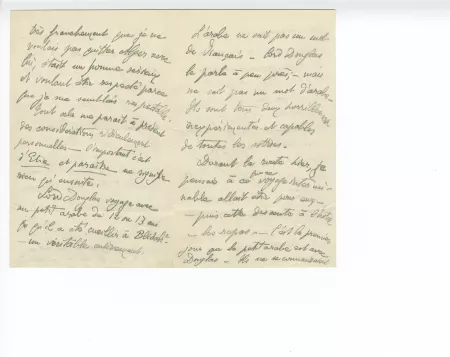 très franchement que je ne
voulais pas quitter Alger avec
lui, étant un homme sérieux
et voulant être respecté parce
que je me semblais respectable.
Tout cela me paraît à présent
des considérations ridiculement
personnelles — l'important c'est
d'Etre et paraître ne signifie
rien qu'ensuite.
Lord Douglas voyage avec
un petit arabe de 12 ou 13 ans
qu'il a été cueillir à Blidah
— un véritable enlèvement.
L'arabe ne sait pas un mot
de français — Lord Douglas
le parle à peu près, — mais
ne sait pas un mot d'arabe
Ils sont tous deux horriblement
inexpérimentés et capables
de toutes les sottises.
Durant la route hier je
pensais à ce que ce voyage intermi-
nable allait être pour eux —
— puis cette descente à l'hôtel
— les repas — — C'est le premier
jour que le petit arabe est avec
Douglas — Ils ne se connaissent